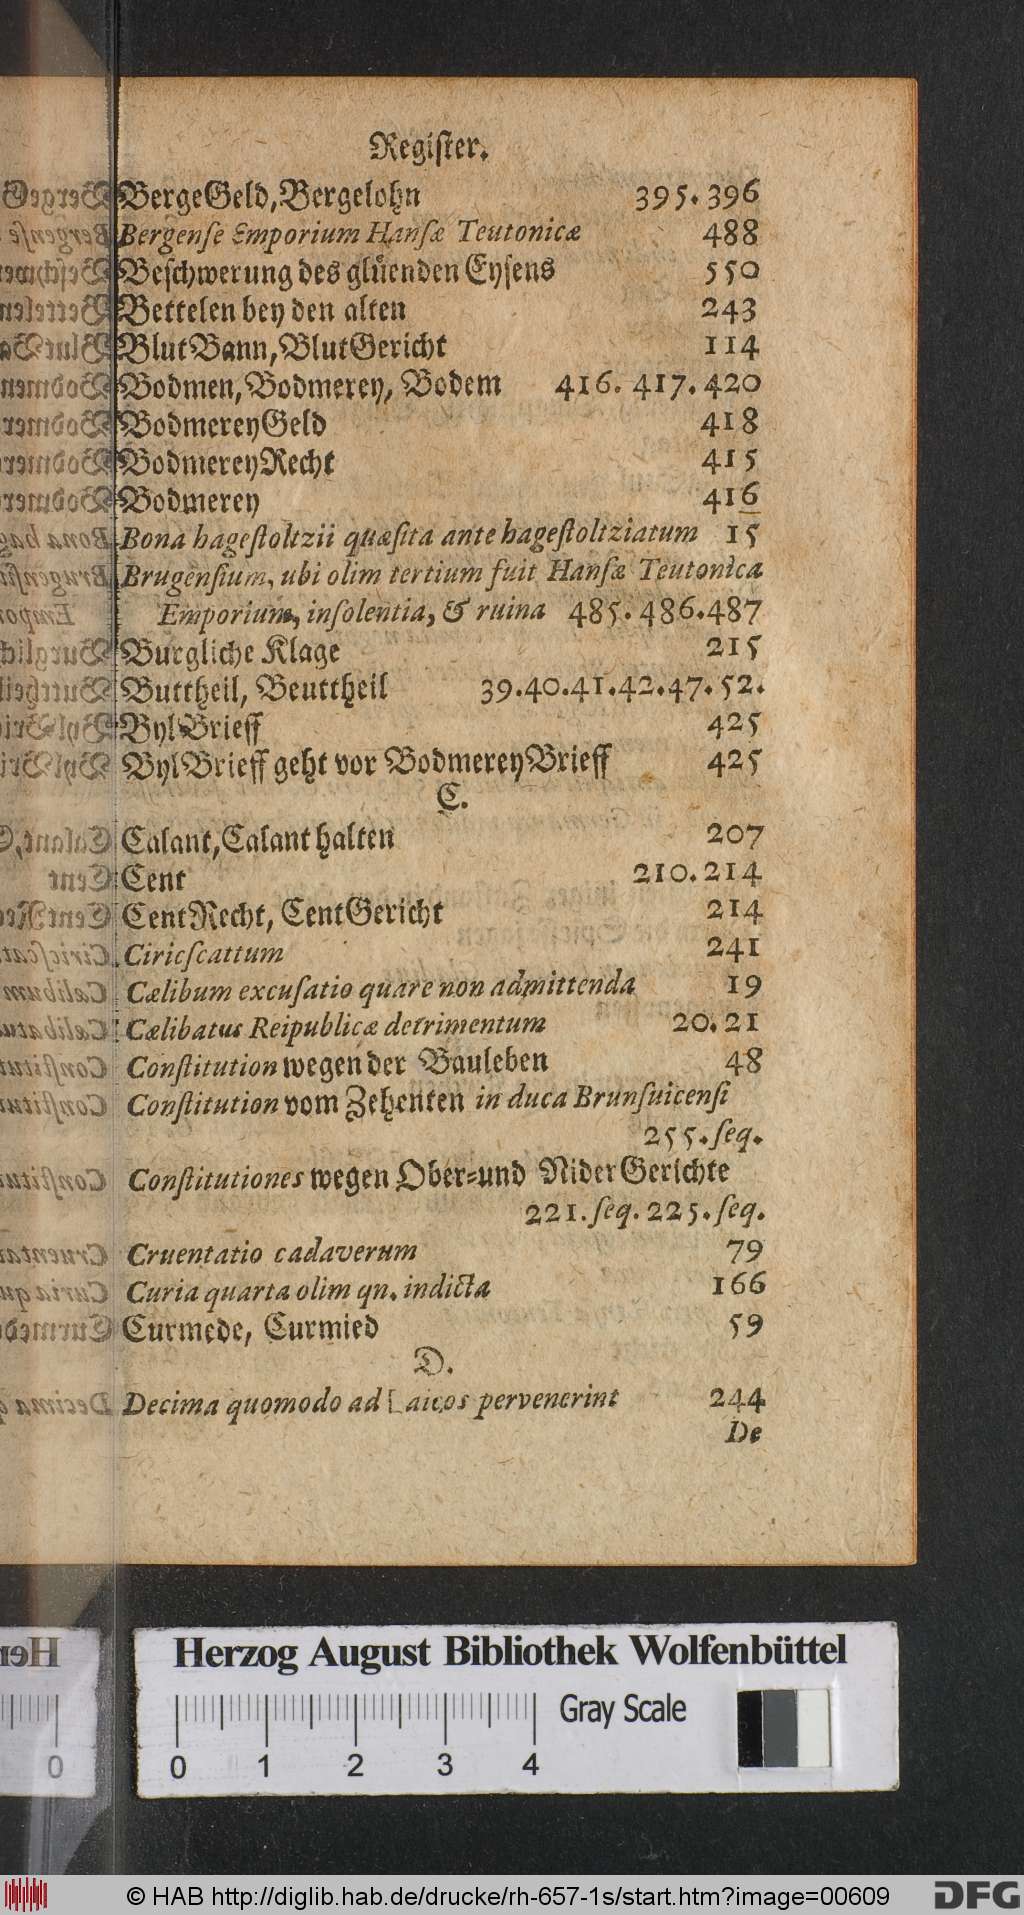 Regiſter.
BergeGeld, Bergelohn 395. 396
Bergenſe Emporium Hanſæ Teutonicæ 488
Beſchwerung des glüenden Eyſens 550
Bettelen bey den alten 243
BlutBann, BlutGericht 114
Bodmen, Bodmerey, Bodem 416. 417. 420
BodmereyGeld 418
BodmereyRecht 415
Bodmerey 416
Bona hageſtoltzii quæſita ante hageſtoltziatum 15
Brugenſium, ubi olim tertium fuit Hanſæ Teutonica
Emporium, inſolentia, & ruina 485. 486. 487
Burgliche Klage 215
Buttheil, Beuttheil 39. 40. 41. 42. 47. 52.
BylBrieff 425
BylBrieff geht vor BodmereyBrieff 425
C.
Calant, Calant halten 207
Cent 210. 214
CentRecht, CentGericht 214
Ciricſcattum 241
Cælibum excuſatio quare non admittenda 19
Cælibatus Reipublicæ detrimentum 20. 21
Conſtitution wegen der Bauleben 48
Conſtitution vom Zehenten in duca Brunſuicenſi
255. ſeq.
Conſtitutiones wegen Ober⸗und NiderGerichte
221. ſeq. 225. ſeq.
Cruentatio cadaverum 79
Curia quarta olim qn. indicta 166
Curmede, Curmied 59
D.
Decima quomodo ad Laicos pervenerint 244
De
Herzog August Bibliothek Wolfenbüttel
Gray Scale
0 1 2 3 4
© HAB http://diglib.hab.de/drucke/rh-657-1s/start.htm?image=00609
DFG